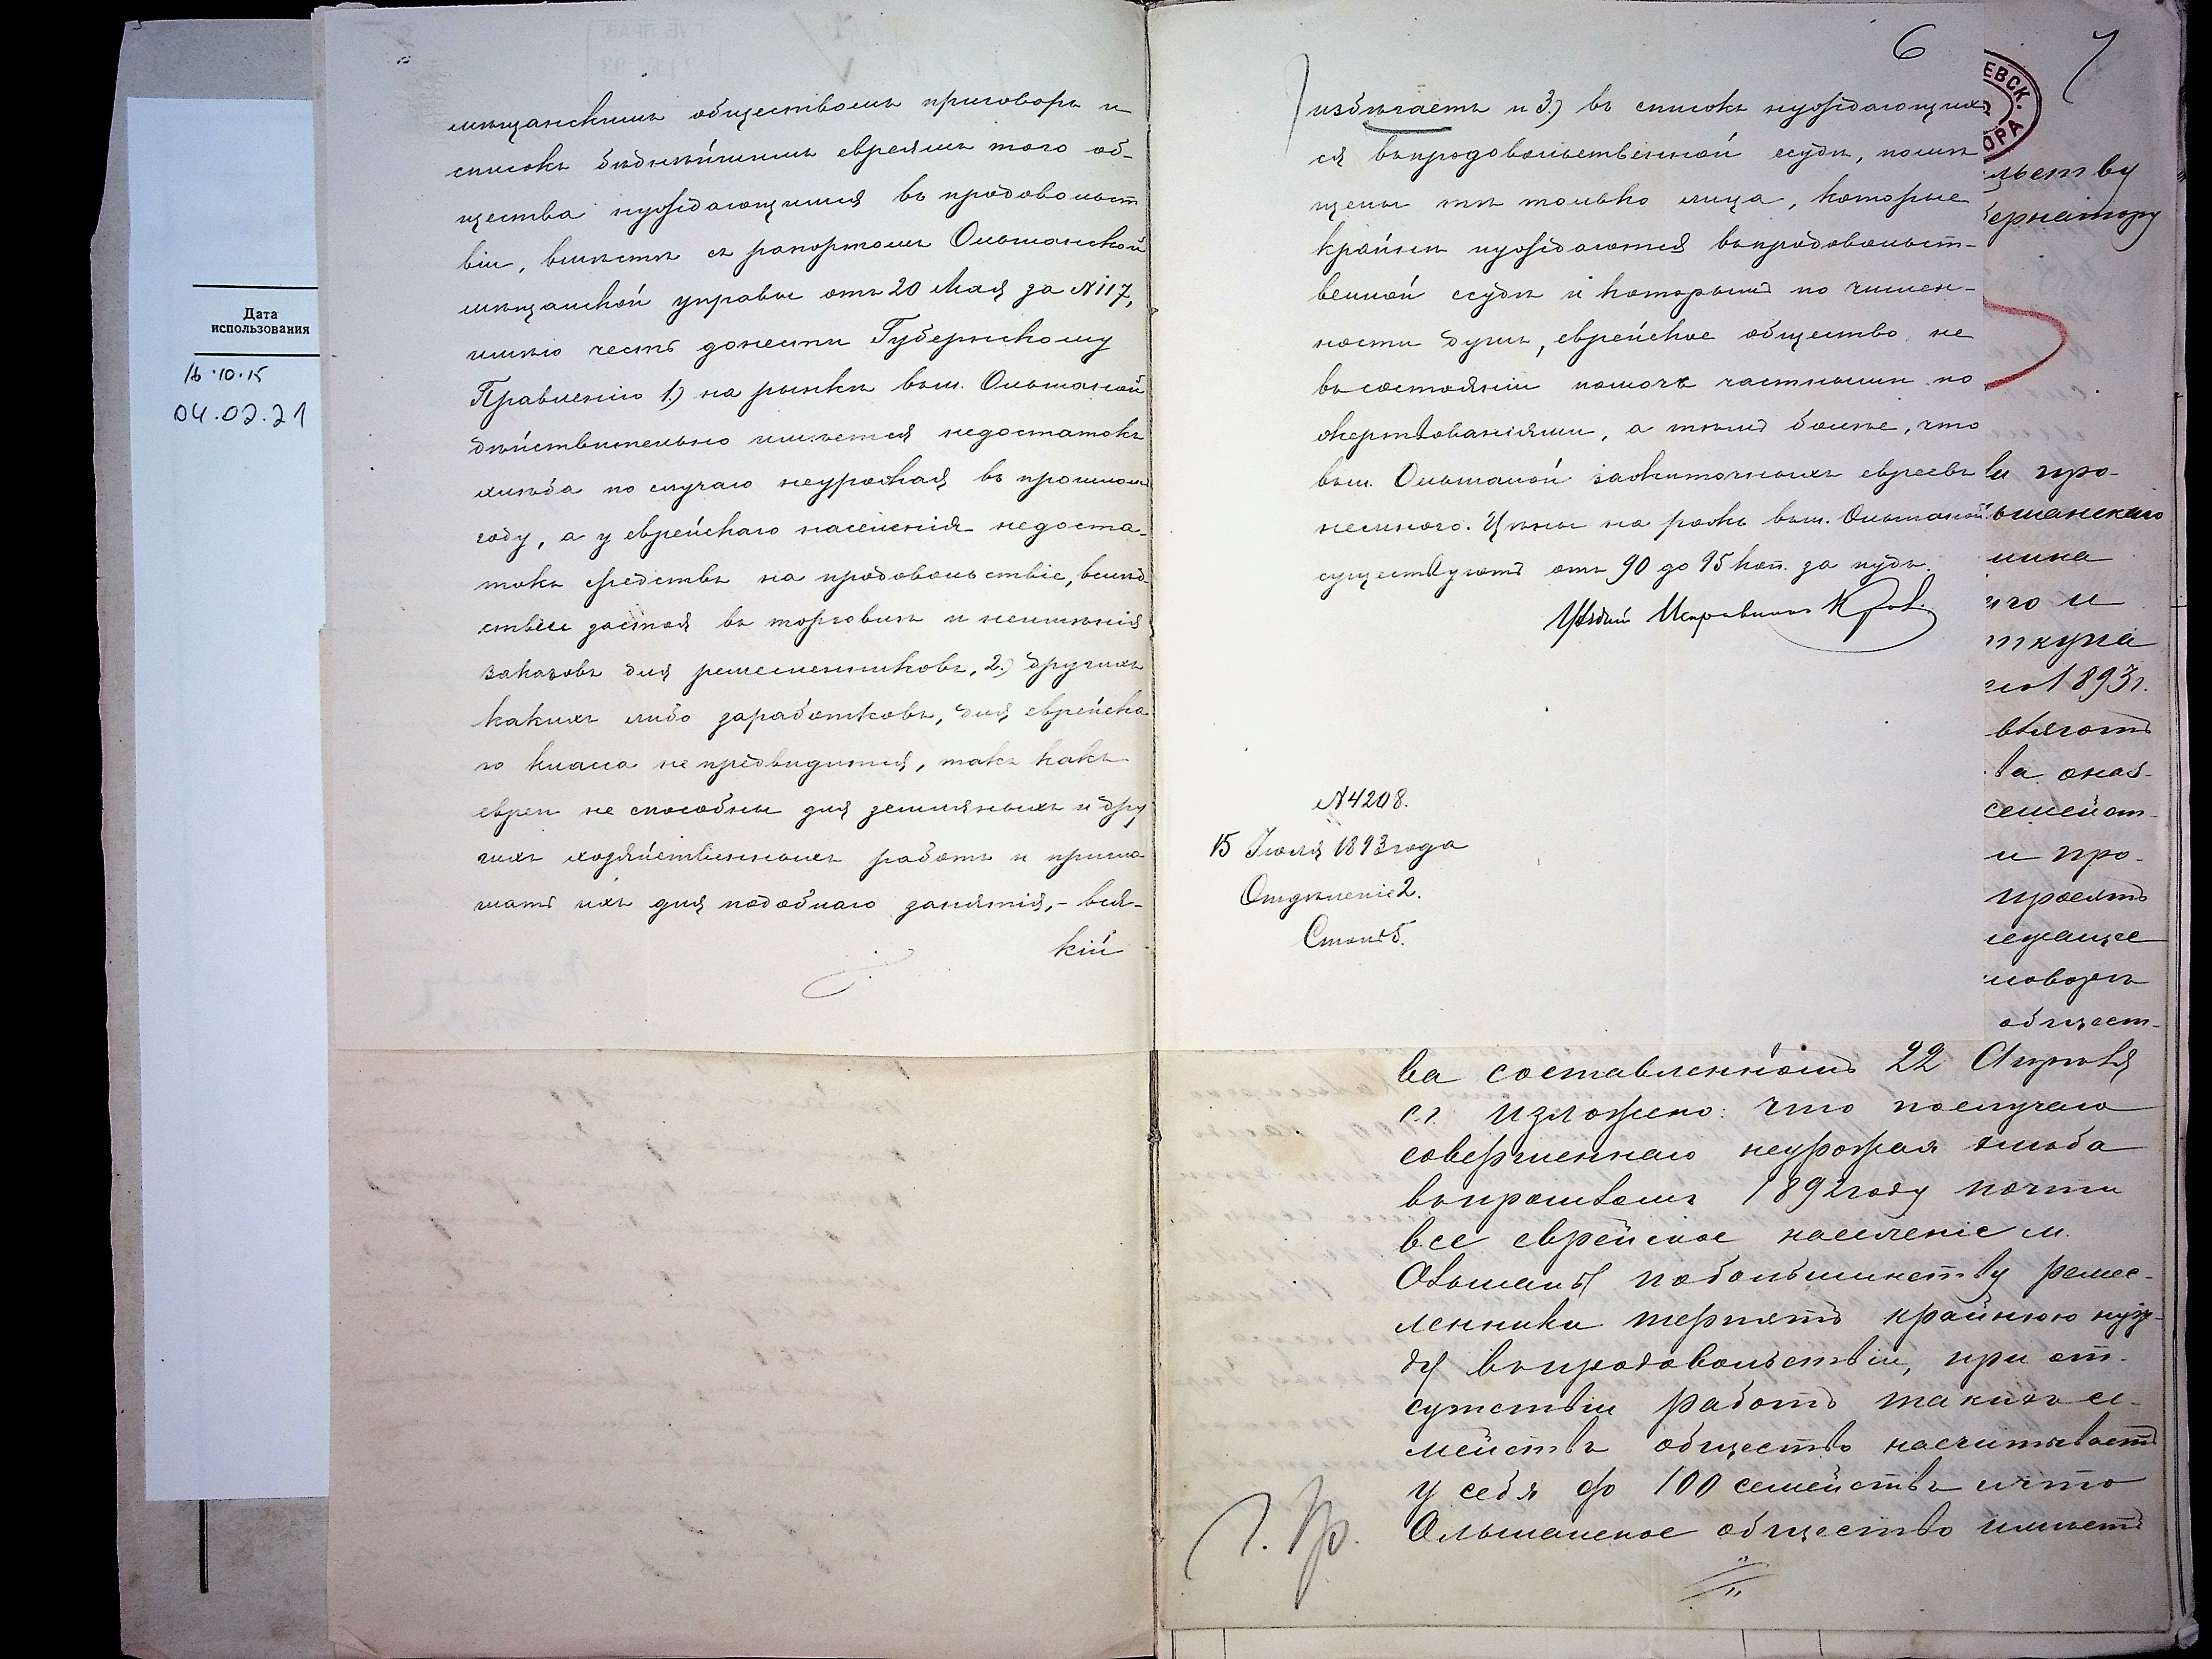 Дата
использования
16.10.15
04.02.21
мѣщанскимъ обществомъ приговоръ и
списокъ бѣднѣйшимъ евреямъ того об-
щества нуждающимся въ продовольст
віи, вмѣстѣ съ рапортомъ Ольшанской
мѣщанской управы отъ 20 Мая за №117,
имѣю честь донести Губернскому
Правленію 1.) на рынкѣ въ м. Ольшаной
дѣйствительно имѣется недостатокъ
хлѣба по случаю неурожая въ прошломъ
году, а у еврейскаго населенія недоста-
токъ средствъ на продовольствіе, вслѣд-
ствіе застоя въ торговлѣ и неимѣнія
заказовъ для ремесленниковъ, 2.) другихъ
какихъ либо заработковъ, для еврейска
го класса не предвидится, такъ какъ
евреи не способны для земляныхъ и дру
гихъ хозяйственныхъ работъ и пригла
шать ихъ для подобнаго занятія, - вся-
кій
6
7
избѣгаетъ и 3.) въ списокъ нуждающих
ся въ продовольственной ссудѣ, помѣ
щены тѣ только лица, которые
крайне нуждаются въ продовольст-
венной ссудѣ и которымъ по числен-
ности душъ, еврейское общество не
въ состояніи помочь частными по
жертвованіями, а тѣмъ болѣе, что
въ м. Ольшаной зажиточныхъ евреевъ
немного. Цѣны на рожь въ м. Ольшаной
существуютъ отъ 90 до 95 коп. за пудъ.
Уѣздный Исправникъ
№4208.
15 Іюля 1893 года
Отдѣленіе 2.
Столъ 5.
ЕВСК.
ОРА
льству
бернатору
и про-
ьшанскаго
щика
го и
ткуна
1893 г.
вляютъ
ва оказ-
семейст-
и про-
просятъ
лежащее
иговоръ
общест-
ва составленномъ 22 Апрѣля
с.г. изложено: что по случаю
совершеннаго неурожая хлѣба
въ прошломъ 1892 году почти
все еврейское населеніе м.
Ольшаны по большинству ремес-
ленники терпятъ крайнюю нуж-
ду въ продовольствіи, при от-
сутствіи работъ такихъ се-
мействъ общество насчитываетъ
у себя до 100 семействъ и что
Ольшанское общество имѣетъ